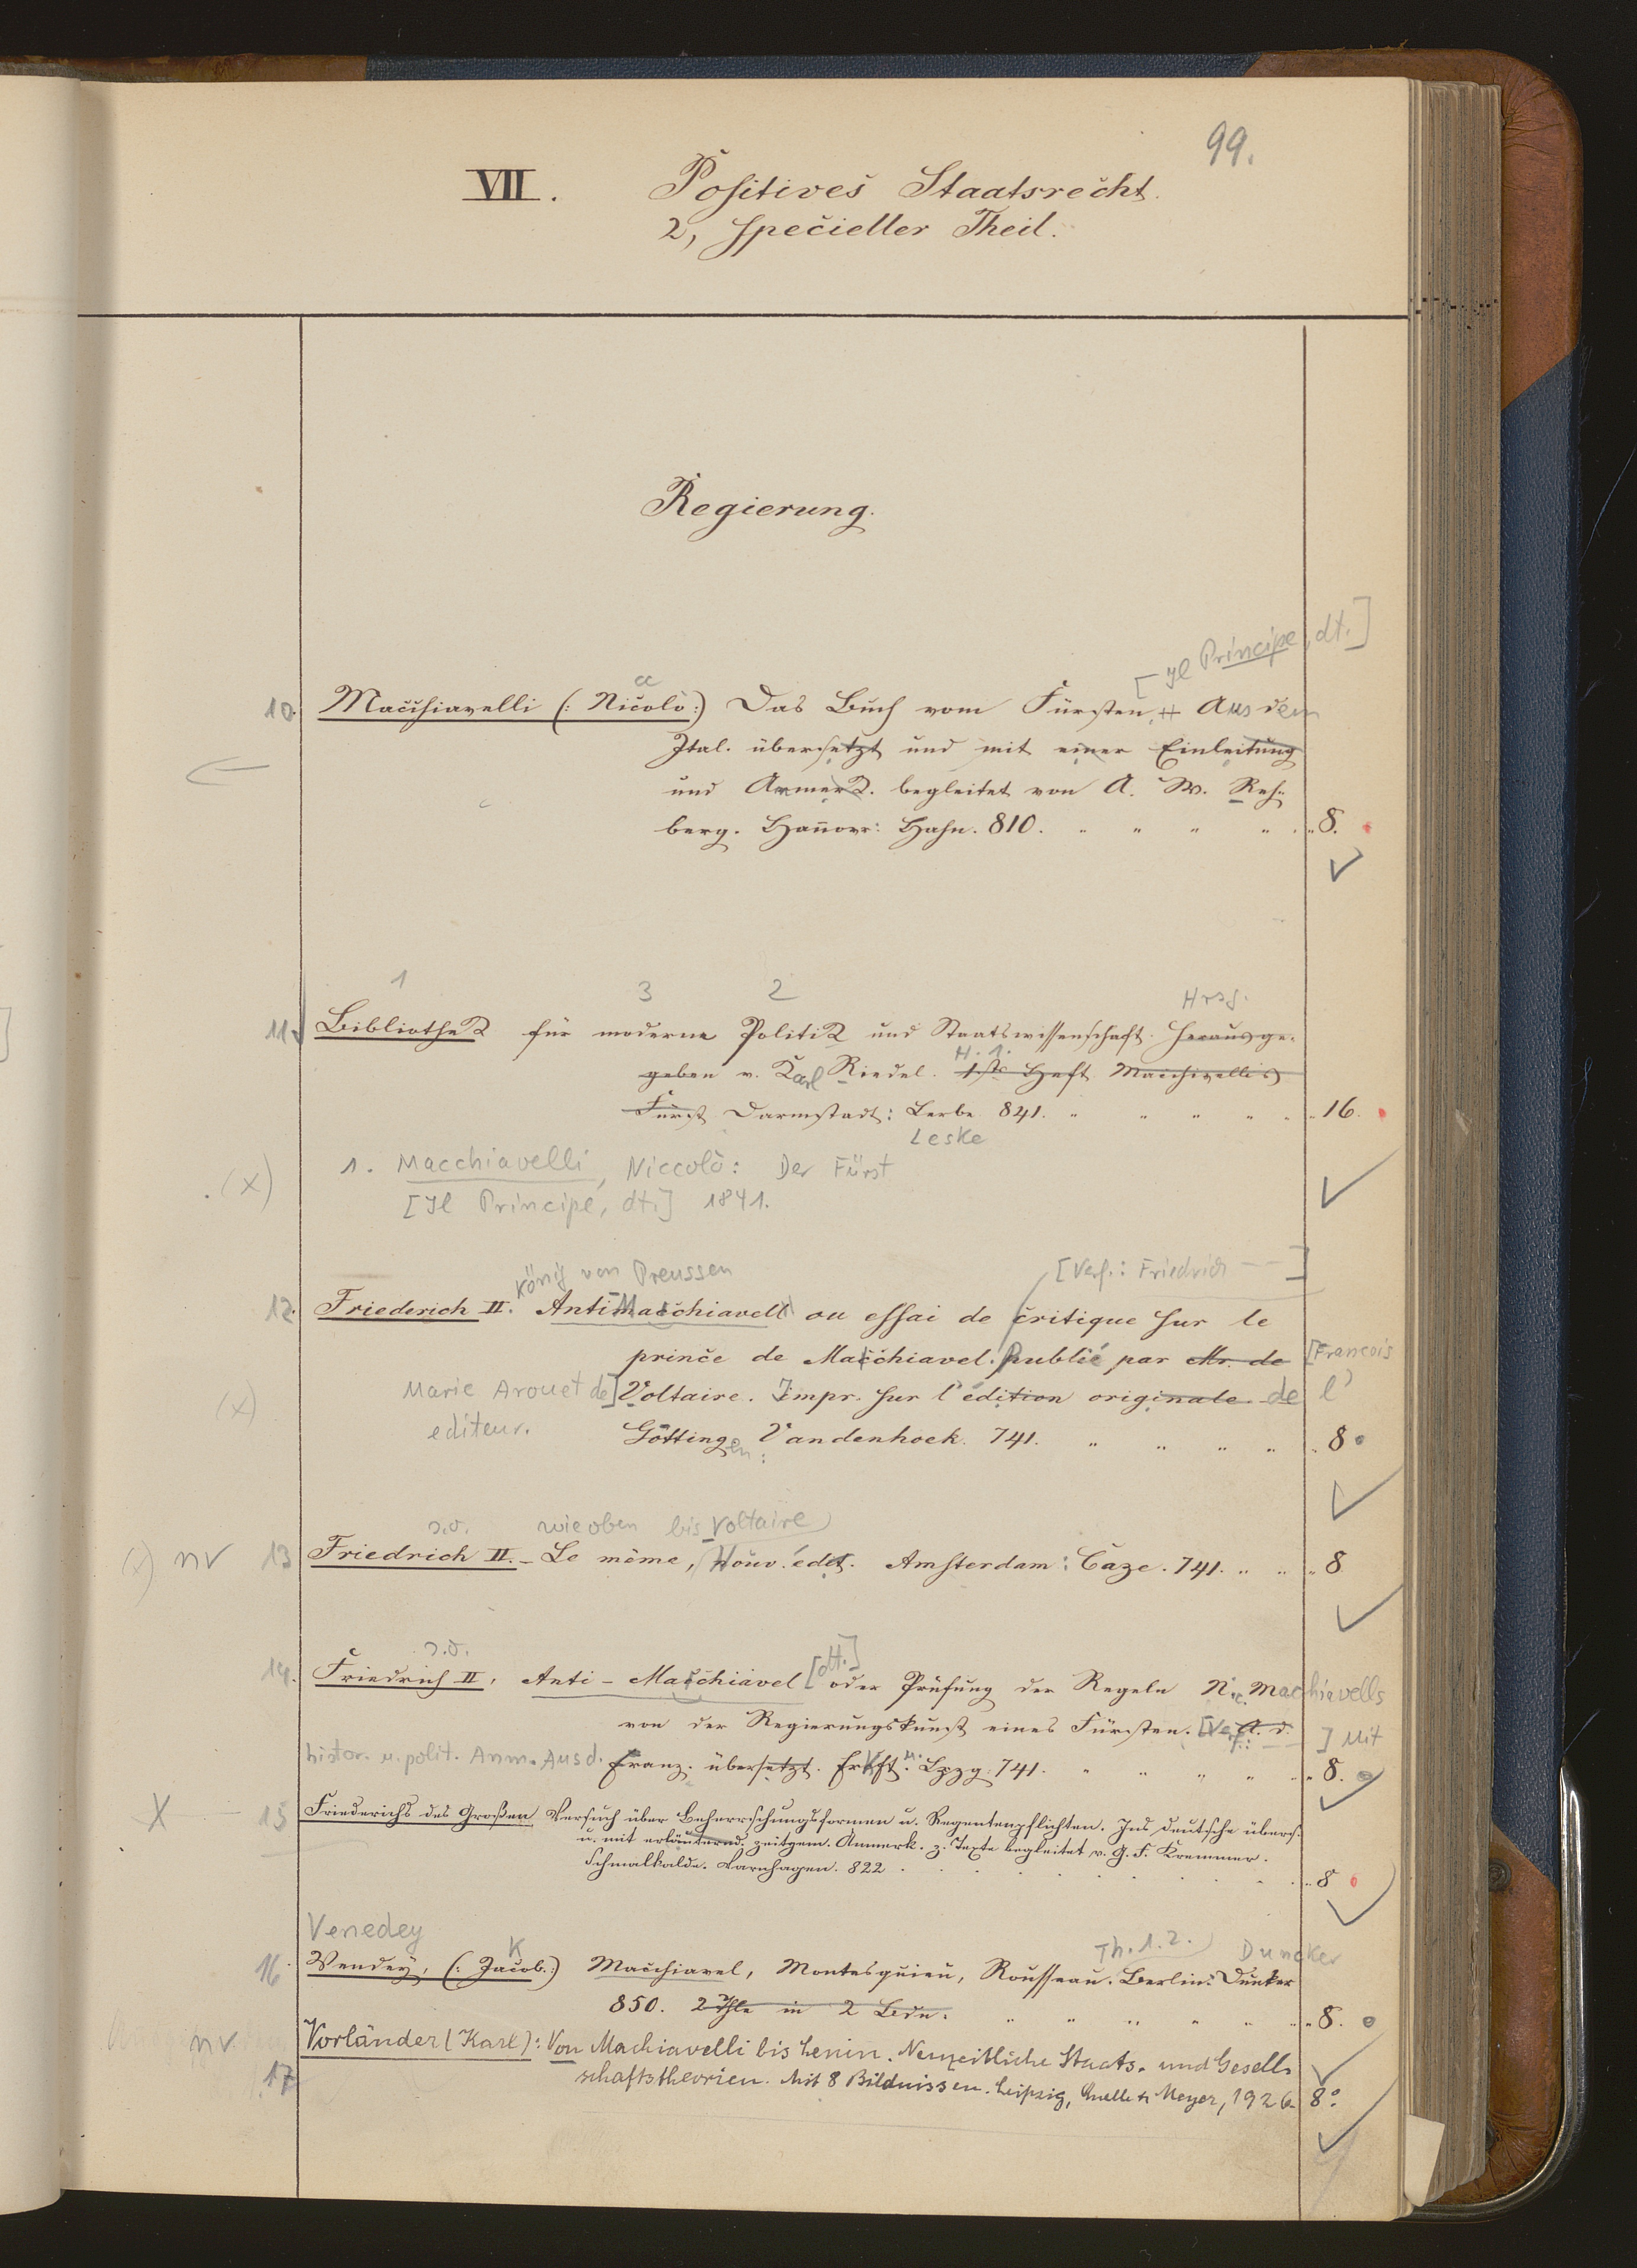 99.
VII. Positives Staatsrecht.
2, specieller Theil.
Regierung.
[Il Principe, dt.]
cc
10. Macchiavelli (: Nicolò :) Das Buch vom Fürsten, Aus dem
Ital. übersetzt und mit einer Einleitung
und Anmerk. begleitet von A. W. Reh-
berg. Hannovr: Hahn. 810. " " " " " 8.
1 3 2 Hrsg.
11. Bibliothek für moderne Politik und Staatswissenschaft. Herausge-
H. 1.
geben v. Karl Riedel. 1ste Heft Macchiavellis
Fürst Darmstadt: Lerbe 841. " " " " " 16.
Leske
(x) 1. Macchiavelli, Niccolò: Der Fürst
[Il Principe, dt.] 1841.
König von Preussen [Verf.: Friedrich —]
12. Friederich II. Anti-Macchiavell ou essai de critique sur le
prince de Macchiavel. Publié par Mr. de [Francois
(x) Marie Arouet de] Voltaire. Impr. sur l'édition originale de l'
editeur. Götting en: Vandenhoek. 741. " " " " " 8
s.o. wie oben bis Voltaire
(x) nv 13 Friedrich II. – Le même, Nouv. édit. Amsterdam: Caze. 741. " " " 8
s.o. [dt.]
14. Friedrich II, Anti-Macchiavel oder Prüfung der Regeln Nic. Machiavells
von der Regierungskunst eines Fürsten. [Verf.: —] A. d. Mit
histor. u. polit. Anm. Aus d. Franz. übersetzt. Frkft. u. Lpzg. 741. " " " " " 8.
X 15 Friederichs des Großen Versuch über Beherrschungsformen u. Regentenpflichten. Ins deutsche übers.
u. mit erläuternd. zeitgem. Anmerk. z. Texte begleitet v. G. F. Kremmer.
Schmalkalde. Varnhagen. 822 . . . . . . . 8
Venedey K Th. 1.2. Duncker
16. Wendey, (: Jacob :) Macchiavel, Montesquieu, Rousseau. Berlin: Dunker
850. 2 Thle in 2 Bdn. " " " " " " 8.
nv Vorländer (Karl): Von Machiavelli bis Lenin. Neuzeitliche Staats- und Gesell-
17 schaftstheorien. Mit 8 Bildnissen. Leipzig, Quelle & Meyer, 1926. 8°.